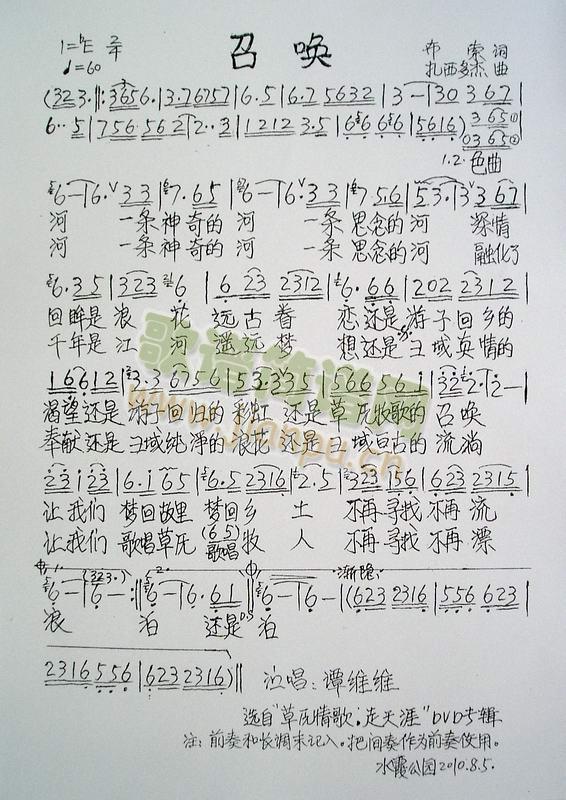 召唤
1=♭E 2/4
♩=60
布索 词
扎西多杰 曲
(323.‖:3656.|3.76757|6.5|6.75632|3-|30367|
6..5|756.562|2..3|12123.5|6666|5616)365①
0365②
1.2.色曲
6-|6.33|7.65|6-|6.33|75.6|53.|3367|
河 一条神奇的河 一条思念的河 深情
河 一条神奇的河 一条思念的河 融化了
6.35|3236|6232312|6.66|2022312|
回眸是浪花 远古眷 恋还是游子回乡的
千年是江河 遥远梦 想还是 域真情的
16612|3.36756|53.335|566561|322.|2-|
渴望还是游子回归的彩虹还是草原牧歌的召唤
奉献还是 域纯净的浪花还是 域亘古的流淌
23123|6.165|6.52316|2.5|32356|6232315|
让我们梦回故里梦回乡土 不再寻找不再流
让我们歌唱草原(65)歌唱牧人 不再寻找不再漂
1. (323.) 2. 渐隐
6-|6-:‖6-|6.61‖6-|6-|(6232316|556623|
浪 泊 还是 泊
2316556|6232316)‖ 演唱:谭维维
选自"草原情歌·走天涯"DVD专辑
注:前奏和长调未记入。把间奏作为前奏使用。
水霞公园2010.8.5.
歌谱简谱网
www.jianpu.cn